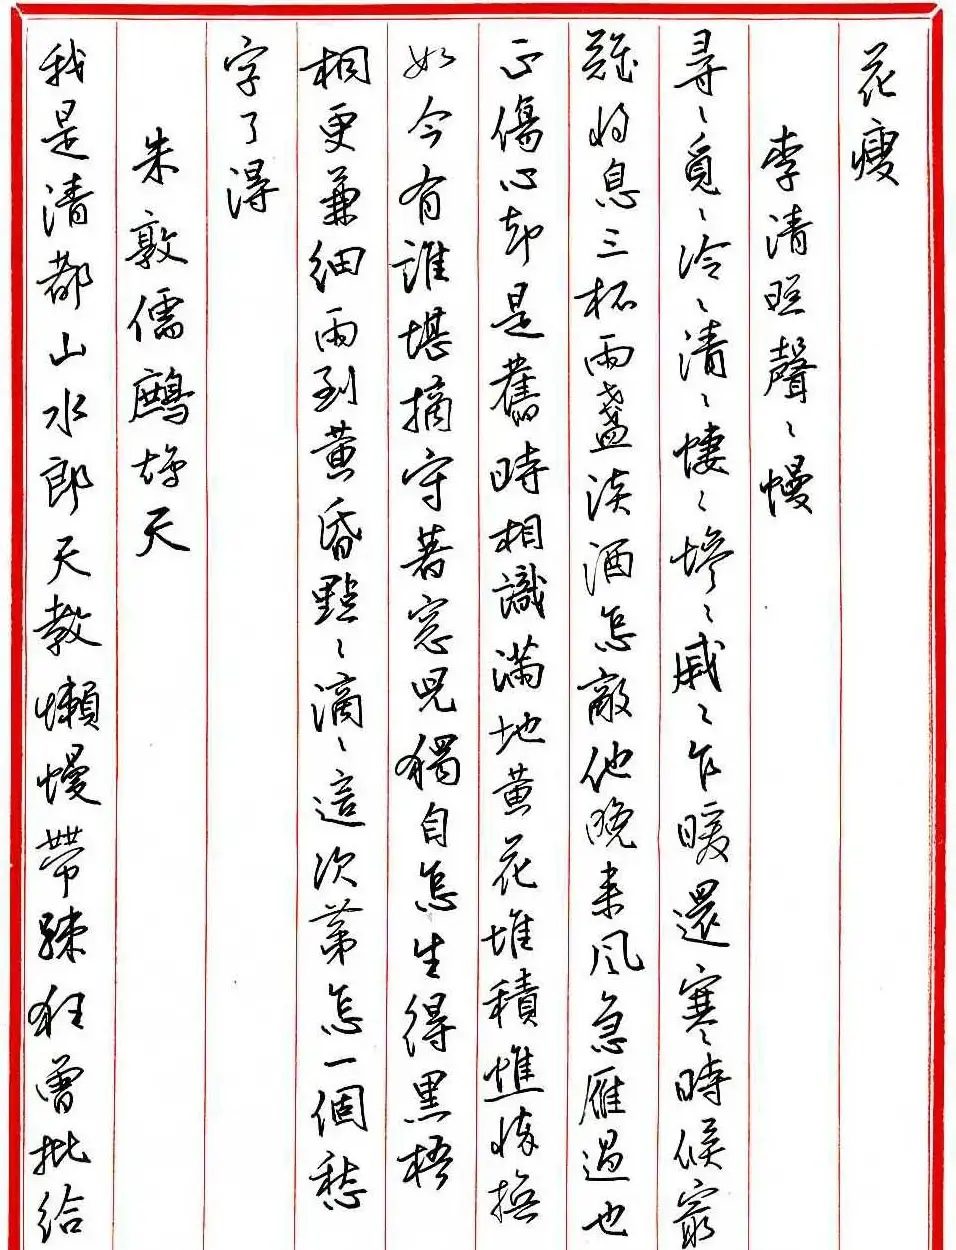 花瘦
李清照聲〻慢
尋〻覓〻冷〻清〻悽〻慘〻戚〻乍暖還寒時候最
難將息三杯兩盞淡酒怎敵他晚來風急雁過也
正傷心却是舊時相識滿地黃花堆積憔悴損
如今有誰堪摘守著窓兒獨自怎生得黑梧
桐更兼細雨到黃昏點〻滴〻這次第怎一個愁
字了得
朱敦儒鷓鴣天
我是清都山水郎天教懶慢帶疎狂曾批給